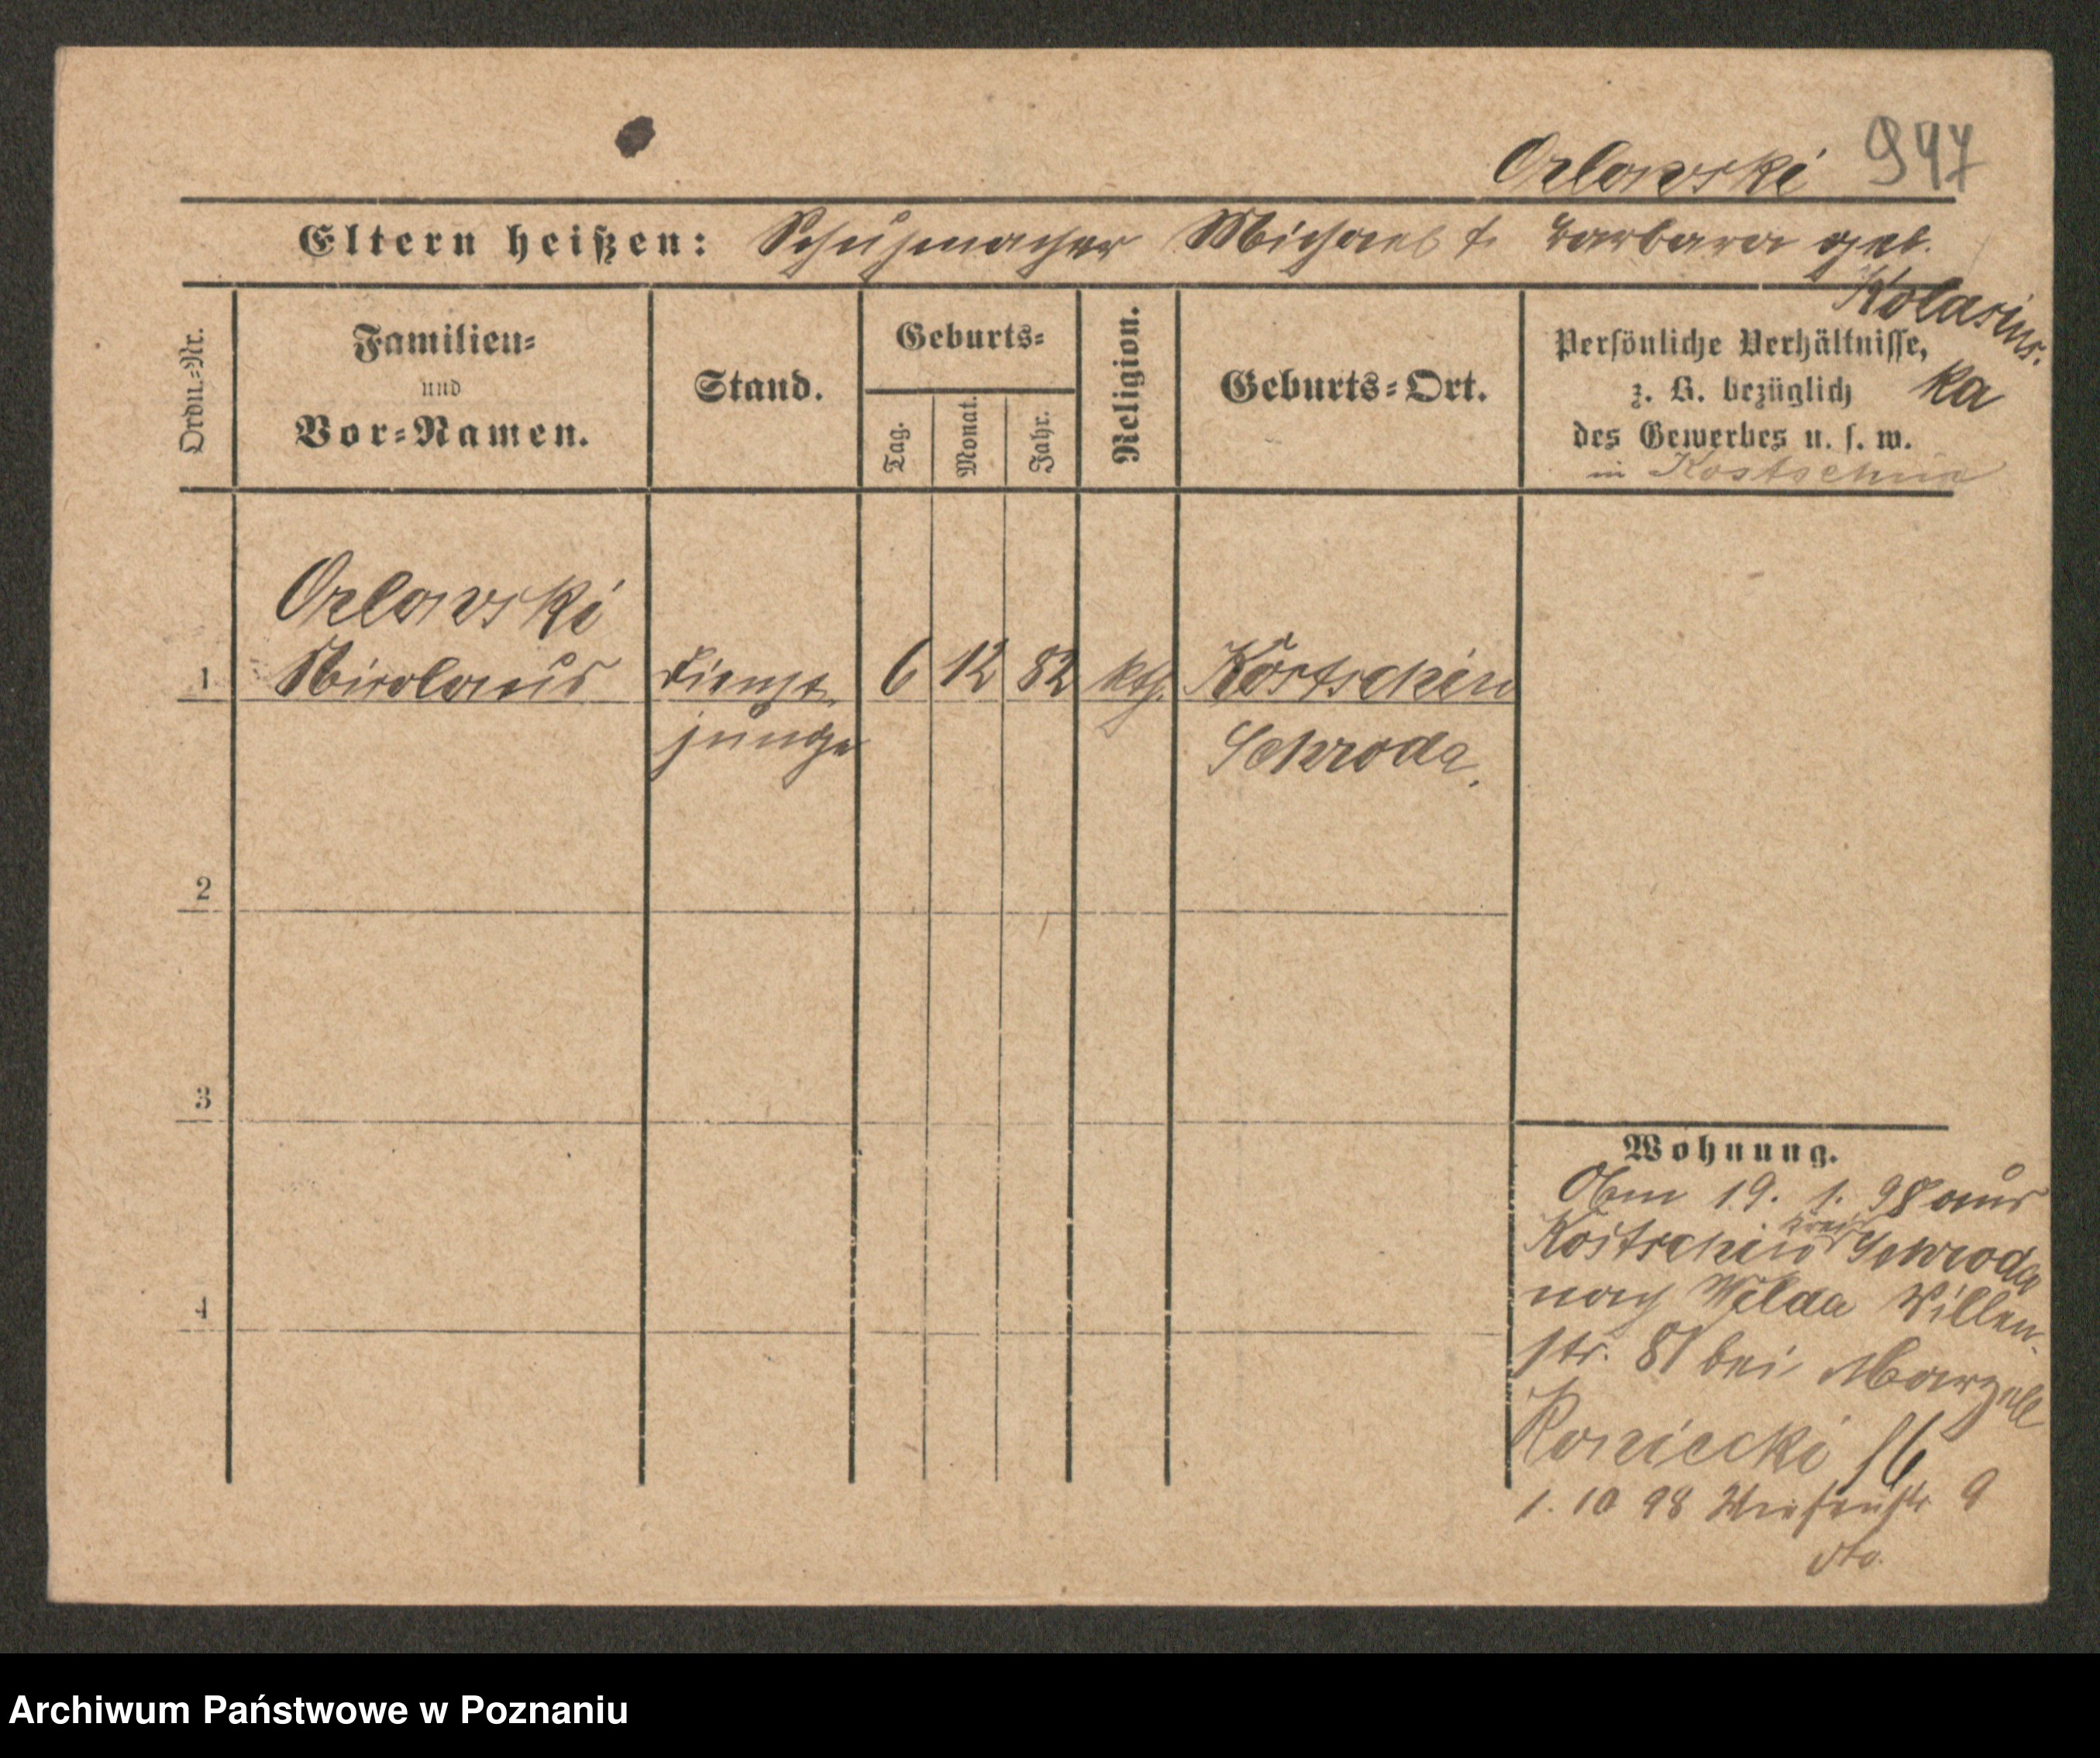 Orlowski 947
Eltern heißen: Schuhmacher Michael & Barbara geb.
Kolasins-
ka
Ordn.-Nr.
Familien-
und
Vor-Namen.
Stand.
Geburts-
Tag.
Monat.
Jahr.
Religion.
Geburts-Ort.
Persönliche Verhältnisse,
z. B. bezüglich
des Gewerbes u. s. w.
in Kostschin
Orlowski
1 Nicolaus Dienst- 6 12 82 kth. Kostschin
junge Schroda.
2
3
4
Wohnung.
19. 1. 98 aus
Kostschin Kreis Schroda
nach Wilda Villen-
str. 81 bei Marzell
Koniecki
1. 10 98 Wiesenstr 9
dto.
Archiwum Państwowe w Poznaniu